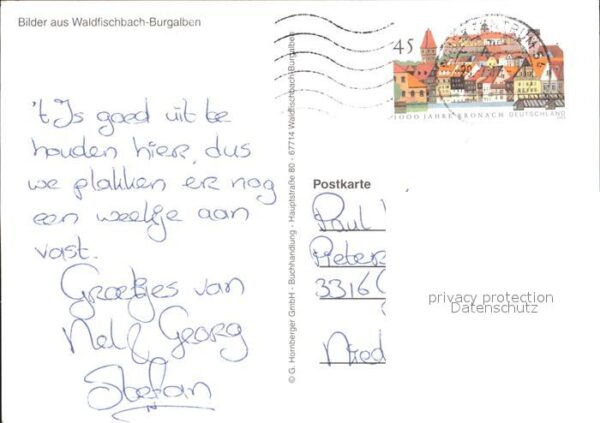 Bilder aus Waldfischbach-Burgalben
45
1000 JAHRE KRONACH DEUTSCHLAND
't Is goed uit te
houden hier, dus
we plakken er nog
een weekje aan
vast.
Groetjes van
Nel & Georg
Stefan
© G. Hornberger GmbH - Buchhandlung - Hauptstraße 80 - 67714 Waldfischbach-Burgalben
Postkarte
Paul
Pieter
3316
Nied
privacy protection
Datenschutz